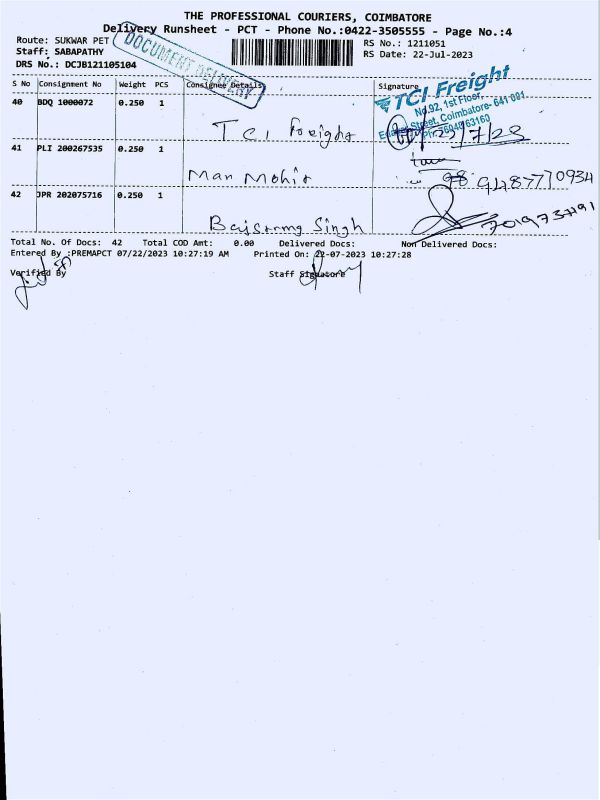 THE PROFESSIONAL COURIERS, COIMBATORE
Delivery Runsheet - PCT - Phone No.:0422-3505555 - Page No.:4
Route: SUKWAR PET
Staff: SABAPATHY
DRS No.: DCJB121105104
DOCUMENT DELIVERY
RS No.: 1211051
RS Date: 22-Jul-2023
S No Consignment No Weight PCS Consignee Details Signature
TCI Freight
No.92, 1st Floor,
Street, Coimbatore- 641 001.
40 BDQ 1000072 0.250 1
TCI Freight
41 PLI 200267535 0.250 1
Man Mohit
9487770934
42 JPR 202075716 0.250 1
Singh
Total No. Of Docs: 42 Total COD Amt: 0.00 Delivered Docs: Non Delivered Docs:
Entered By :PREMAPCT 07/22/2023 10:27:19 AM Printed On: 22-07-2023 10:27:28
Verified By Staff Signature